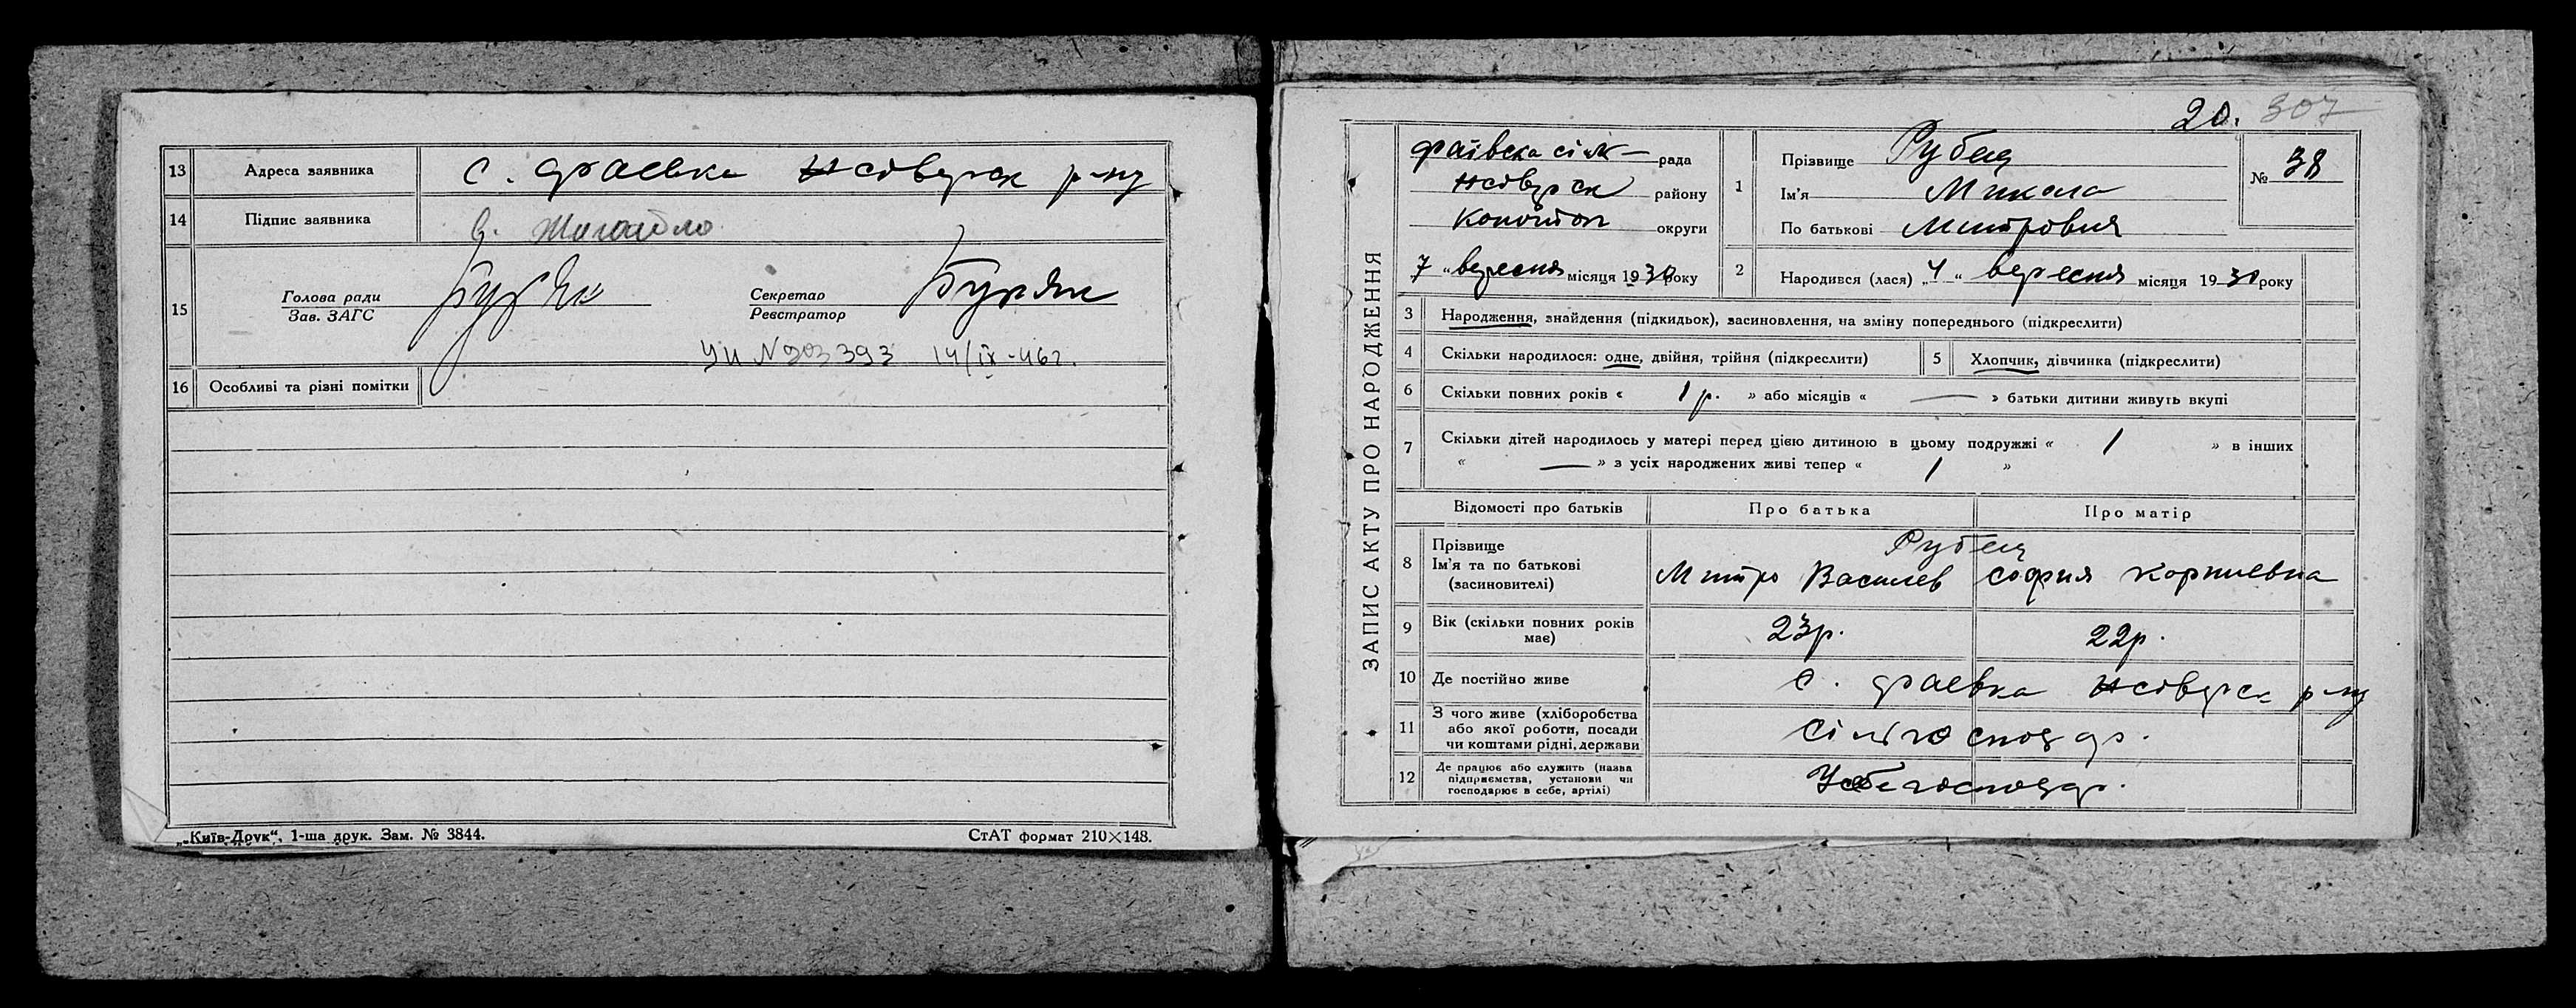 13 Адреса заявника с. Фаевка р-ну
14 Підпис заявника
15 Голова ради Секретар Буряк
Зав. ЗАГС Реєстратор
393 14/ІХ-46г.
16 Особливі та різні помітки
„Київ-Друк“, 1-ша друк. Зам. № 3844. СтАТ формат 210×148.
20. 307
ЗАПИС АКТУ ПРО НАРОДЖЕННЯ
Фаївска сільк— рада
району
Конотоп округи
7 „ вересня місяця 1930 року
№ 38
1 Прізвище Рубец
Ім'я Микола
По батькові Митрович
2 Народився (лася) „4“ вересня місяця 1930 року
3 Народження, знайдення (підкидьок), засиновлення, на зміну попереднього (підкреслити)
4 Скільки народилося: одне, двійня, трійня (підкреслити) 5 Хлопчик, дівчинка (підкреслити)
6 Скільки повних років « 1 р. » або місяців « — » батьки дитини живуть вкупі
7 Скільки дітей народилось у матері перед цією дитиною в цьому подружжі « 1 » в інших
« — » з усіх народжених живі тепер « 1 »
Відомості про батьків Про батька Про матір
8 Прізвище Рубец
Ім'я та по батькові Митро Васильев София Корниевна
(засиновителі)
9 Вік (скільки повних років 23р. 22р.
має)
10 Де постійно живе с. Фаевка р-ну
11 З чого живе (хліборобства
або якої роботи, посади
чи коштами рідні, держави
12 Де працює або служить (назва
підприємства, установи чи
господарює в себе, артілі)